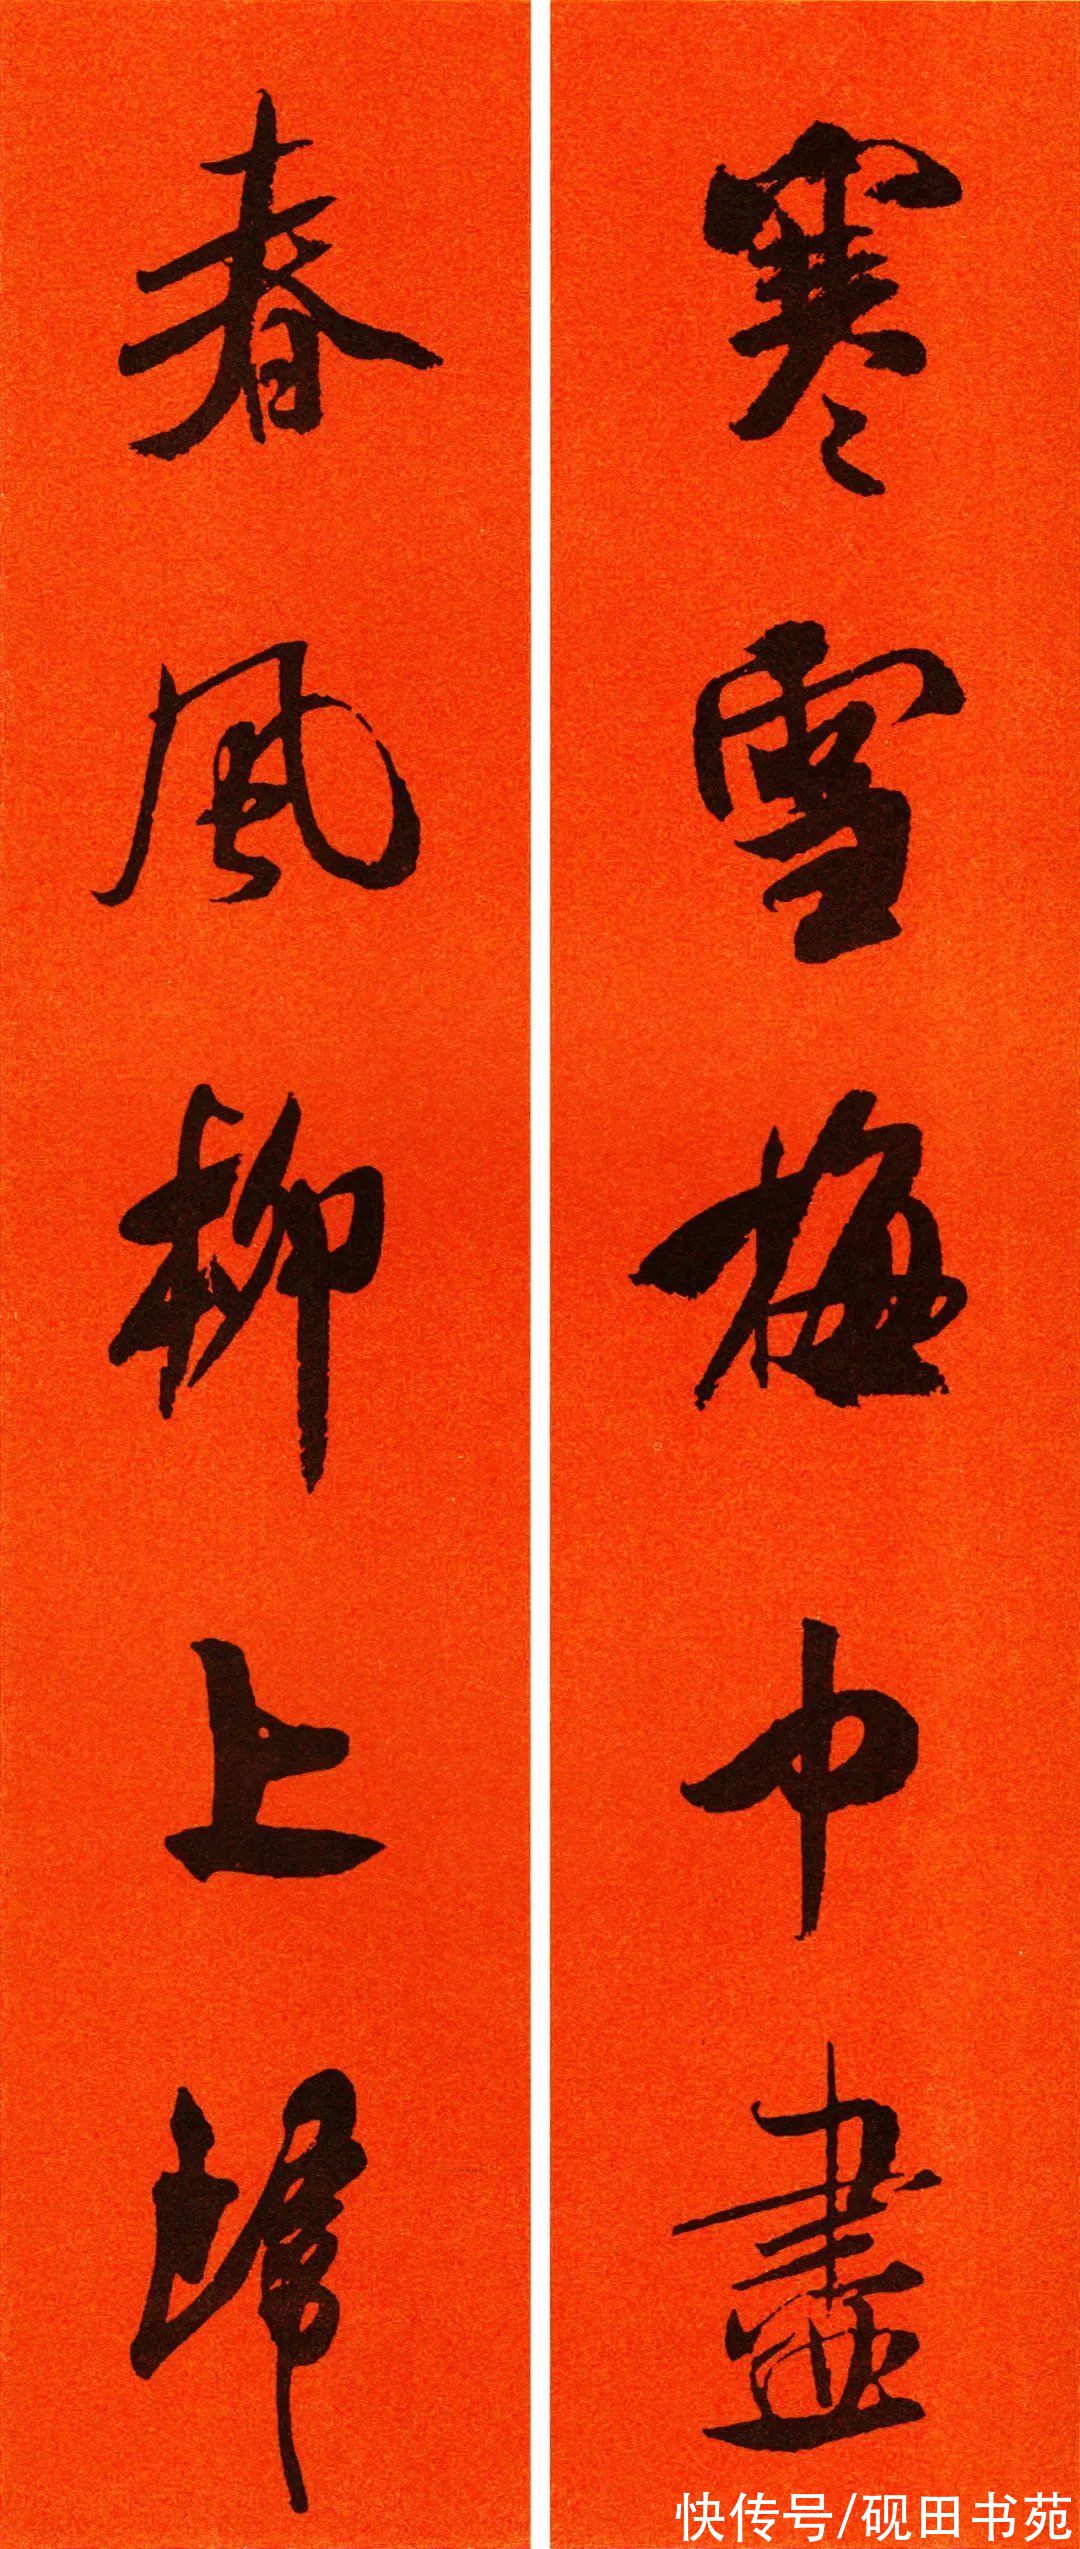 寒雪梅中盡
春風柳上歸
快传号/砚田书苑